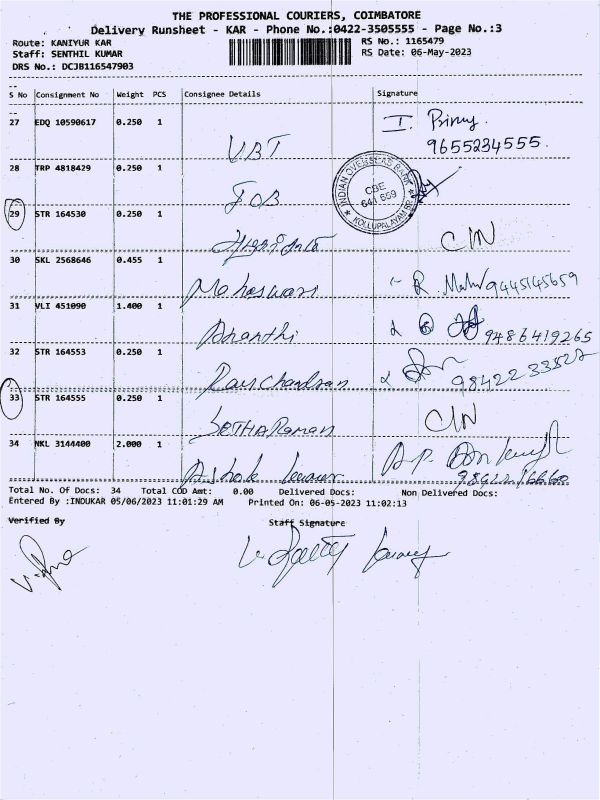 THE PROFESSIONAL COURIERS, COIMBATORE
Delivery Runsheet - KAR - Phone No.:0422-3505555 - Page No.:3
Route: KANIYUR KAR
RS No.: 1165479
Staff: SENTHIL KUMAR
RS Date: 06-May-2023
DRS No.: DCJB116547903
S No Consignment No Weight PCS Consignee Details Signature
27 EDQ 10590617 0.250 1 I. Binu
UBI 9655234555.
28 TRP 4818429 0.250 1
IOB
INDIAN OVERSEAS BANK
CBE
641 659
KOLLUPALAYAM BR
29 STR 164530 0.250 1
C/N
30 SKL 2568646 0.455 1
Maheswari R. 9445145659
31 VLI 451090 1.400 1
Ananthi 9486419265
32 STR 164553 0.250 1
Ravichandran 9842233522
33 STR 164555 0.250 1
C/N
SETHARaman
34 NKL 3144400 2.000 1
A.P.
Ashok kumar
Total No. Of Docs: 34 Total COD Amt: 0.00 Delivered Docs: Non Delivered Docs:
Entered By :INDUKAR 05/06/2023 11:01:29 AM Printed On: 06-05-2023 11:02:13
Verified By Staff Signature